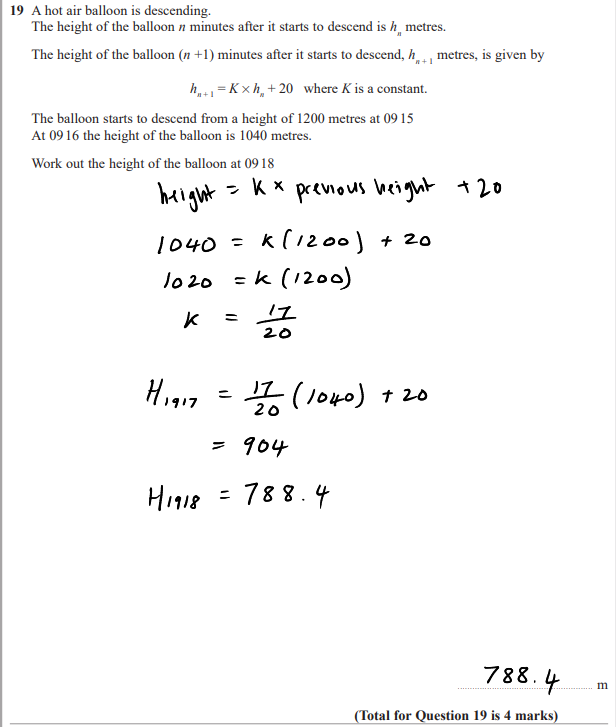 19 A hot air balloon is descending.
The height of the balloon n minutes after it starts to descend is hₙ metres.
The height of the balloon (n +1) minutes after it starts to descend, hₙ₊₁ metres, is given by
hₙ₊₁ = K × hₙ + 20 where K is a constant.
The balloon starts to descend from a height of 1200 metres at 09 15
At 09 16 the height of the balloon is 1040 metres.
Work out the height of the balloon at 09 18
height = K × previous height + 20
1040 = K (1200) + 20
1020 = K (1200)
K = 17/20
H₁₉₁₇ = 17/20 (1040) + 20
= 904
H₁₉₁₈ = 788.4
788.4 m
(Total for Question 19 is 4 marks)